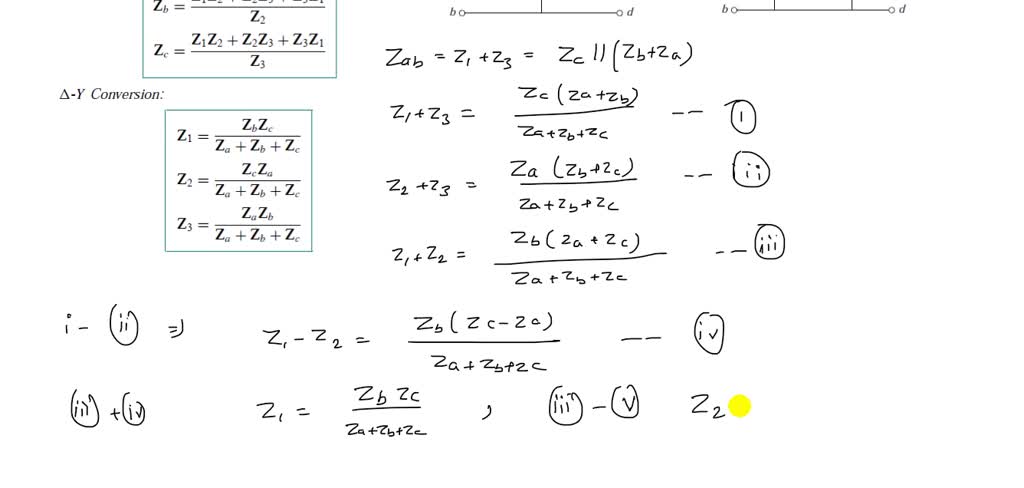 Z_b = Z_2
Z_c = (Z_1Z_2 + Z_2Z_3 + Z_3Z_1) / Z_3
b d
b d
Z_ab = Z_1 + Z_3 = Z_c || (Z_b + Z_a)
Δ-Y Conversion:
Z_1 = Z_bZ_c / (Z_a + Z_b + Z_c)
Z_2 = Z_cZ_a / (Z_a + Z_b + Z_c)
Z_3 = Z_aZ_b / (Z_a + Z_b + Z_c)
Z_1 + Z_3 = Z_c (Z_a + Z_b) / (Z_a + Z_b + Z_c) -- (i)
Z_2 + Z_3 = Z_a (Z_b + Z_c) / (Z_a + Z_b + Z_c) -- (ii)
Z_1 + Z_2 = Z_b (Z_a + Z_c) / (Z_a + Z_b + Z_c) -- (iii)
i - (ii) => Z_1 - Z_2 = Z_b (Z_c - Z_a) / (Z_a + Z_b + Z_c) -- (iv)
(iii) + (iv) Z_1 = Z_b Z_c / (Z_a + Z_b + Z_c) , (iii) - (v) Z_2